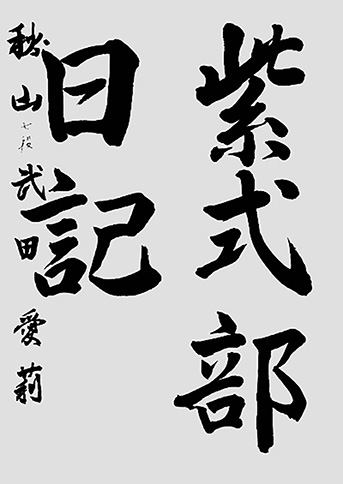 紫式部
日記
秋山 七段 武田愛莉